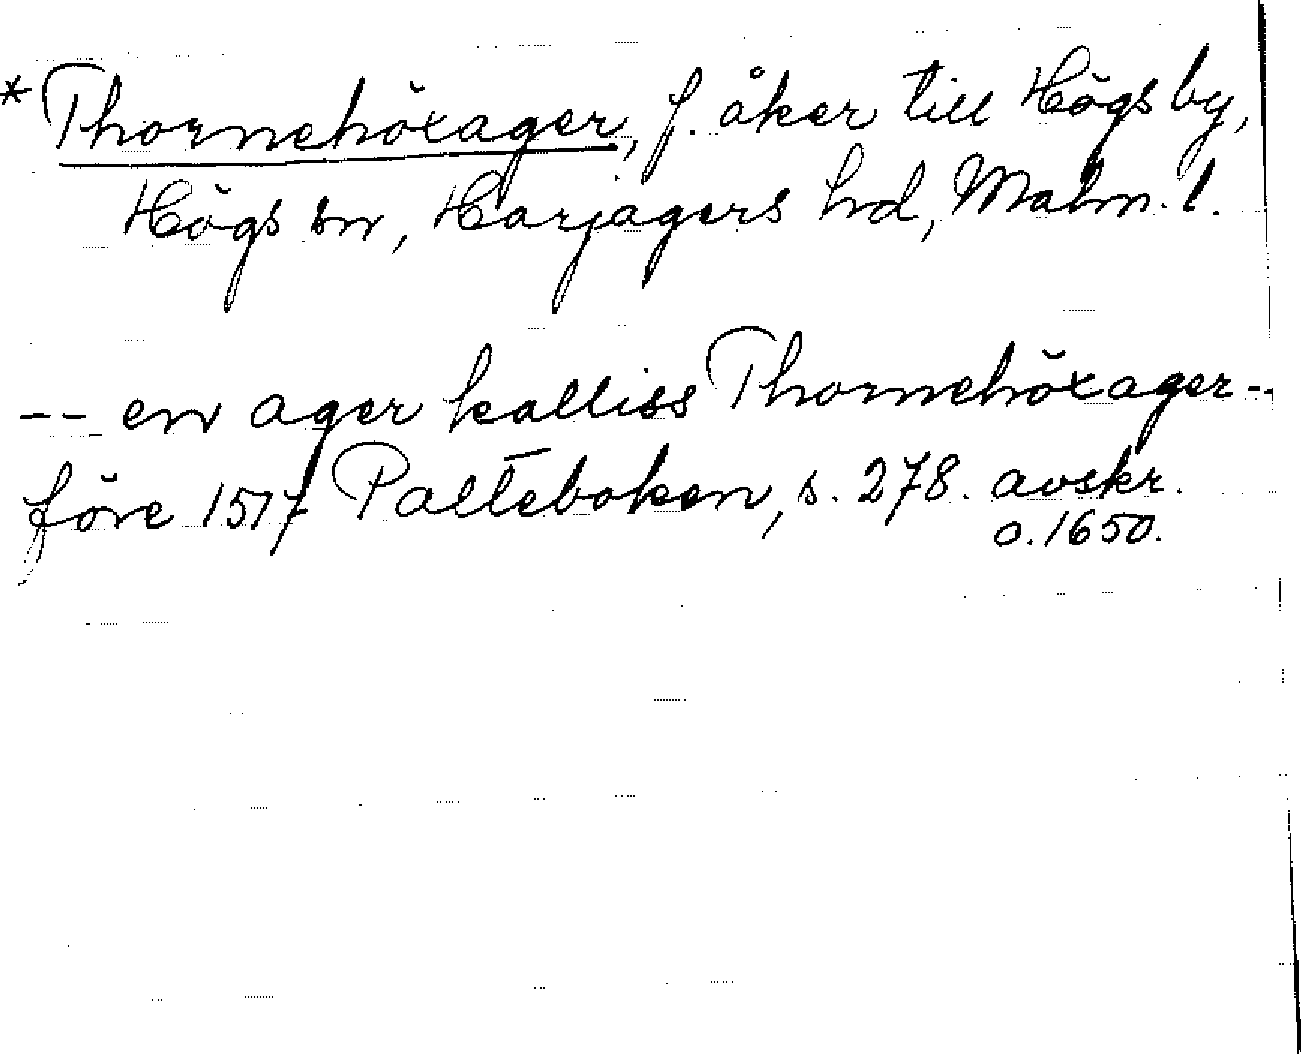 * Thornehöxager, f. åker till Högs by,
Högs sn, Harjagers hd, Malm. l.
-- en ager kalliss Thornehöxager --
före 1517 Palteboken, s. 278. avskr.
o. 1650.